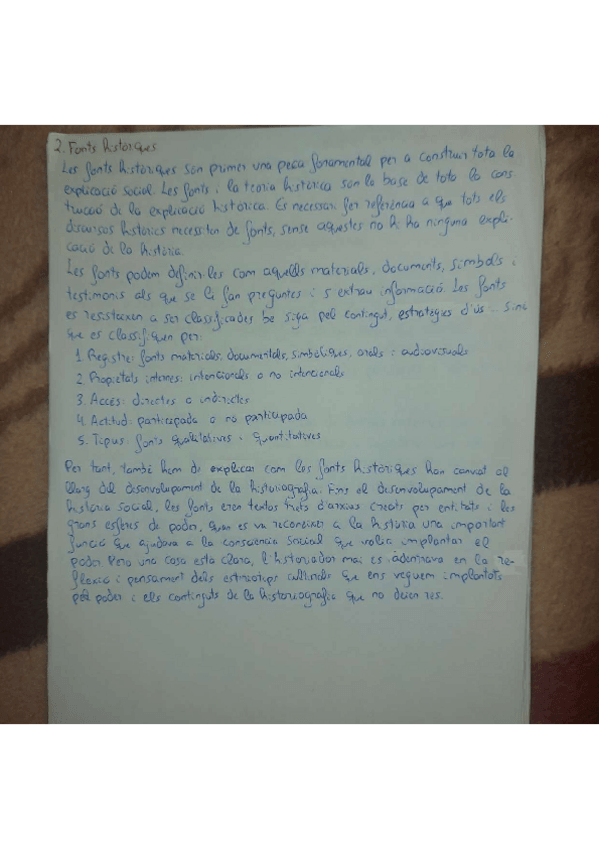 2. Fonts històriques
Les fonts històriques son primer una peça fonamental per a construir tota la
explicació social. Les fonts i la teoria històrica son la base de tota la cons-
trucció de la explicació històrica. Es necessari fer referència a que tots els
discursos històrics necessiten de fonts, sense aquestes no hi ha ninguna expli-
cació de la història.
Les fonts podem definir-les com aquells materials, documents, símbols i
testimonis als que se li fan preguntes i s'extrau informació. Les fonts
es resisteixen a ser classificades be siga pel contingut, estratègies d'ús... Sino
que es classifiquen per:
1. Registre: fonts materials, documentals, simbòliques, orals i audiovisuals
2. Propietats internes: intencionals o no intencionals
3. Accés: directes o indirectes
4. Actitud: participada o no participada
5. Tipus: fonts qualitatives i quantitatives
Per tant, també hem de explicar com les fonts històriques han canviat al
llarg del desenvolupament de la historiografia. Fins el desenvolupament de la
història social, les fonts eren textos trets d'arxius creats per entitats i les
grans esferes de poder, quan es va reconeixer a la història una important
funció que ajudava a la consciència social que volia implantar el
poder. Pero una cosa esta clara, l'historiador mai es adentrava en la re-
flexió i pensament dels estereotips culturals que ens veguem implantats
pel poder i els continguts de la historiografia que no deien res.